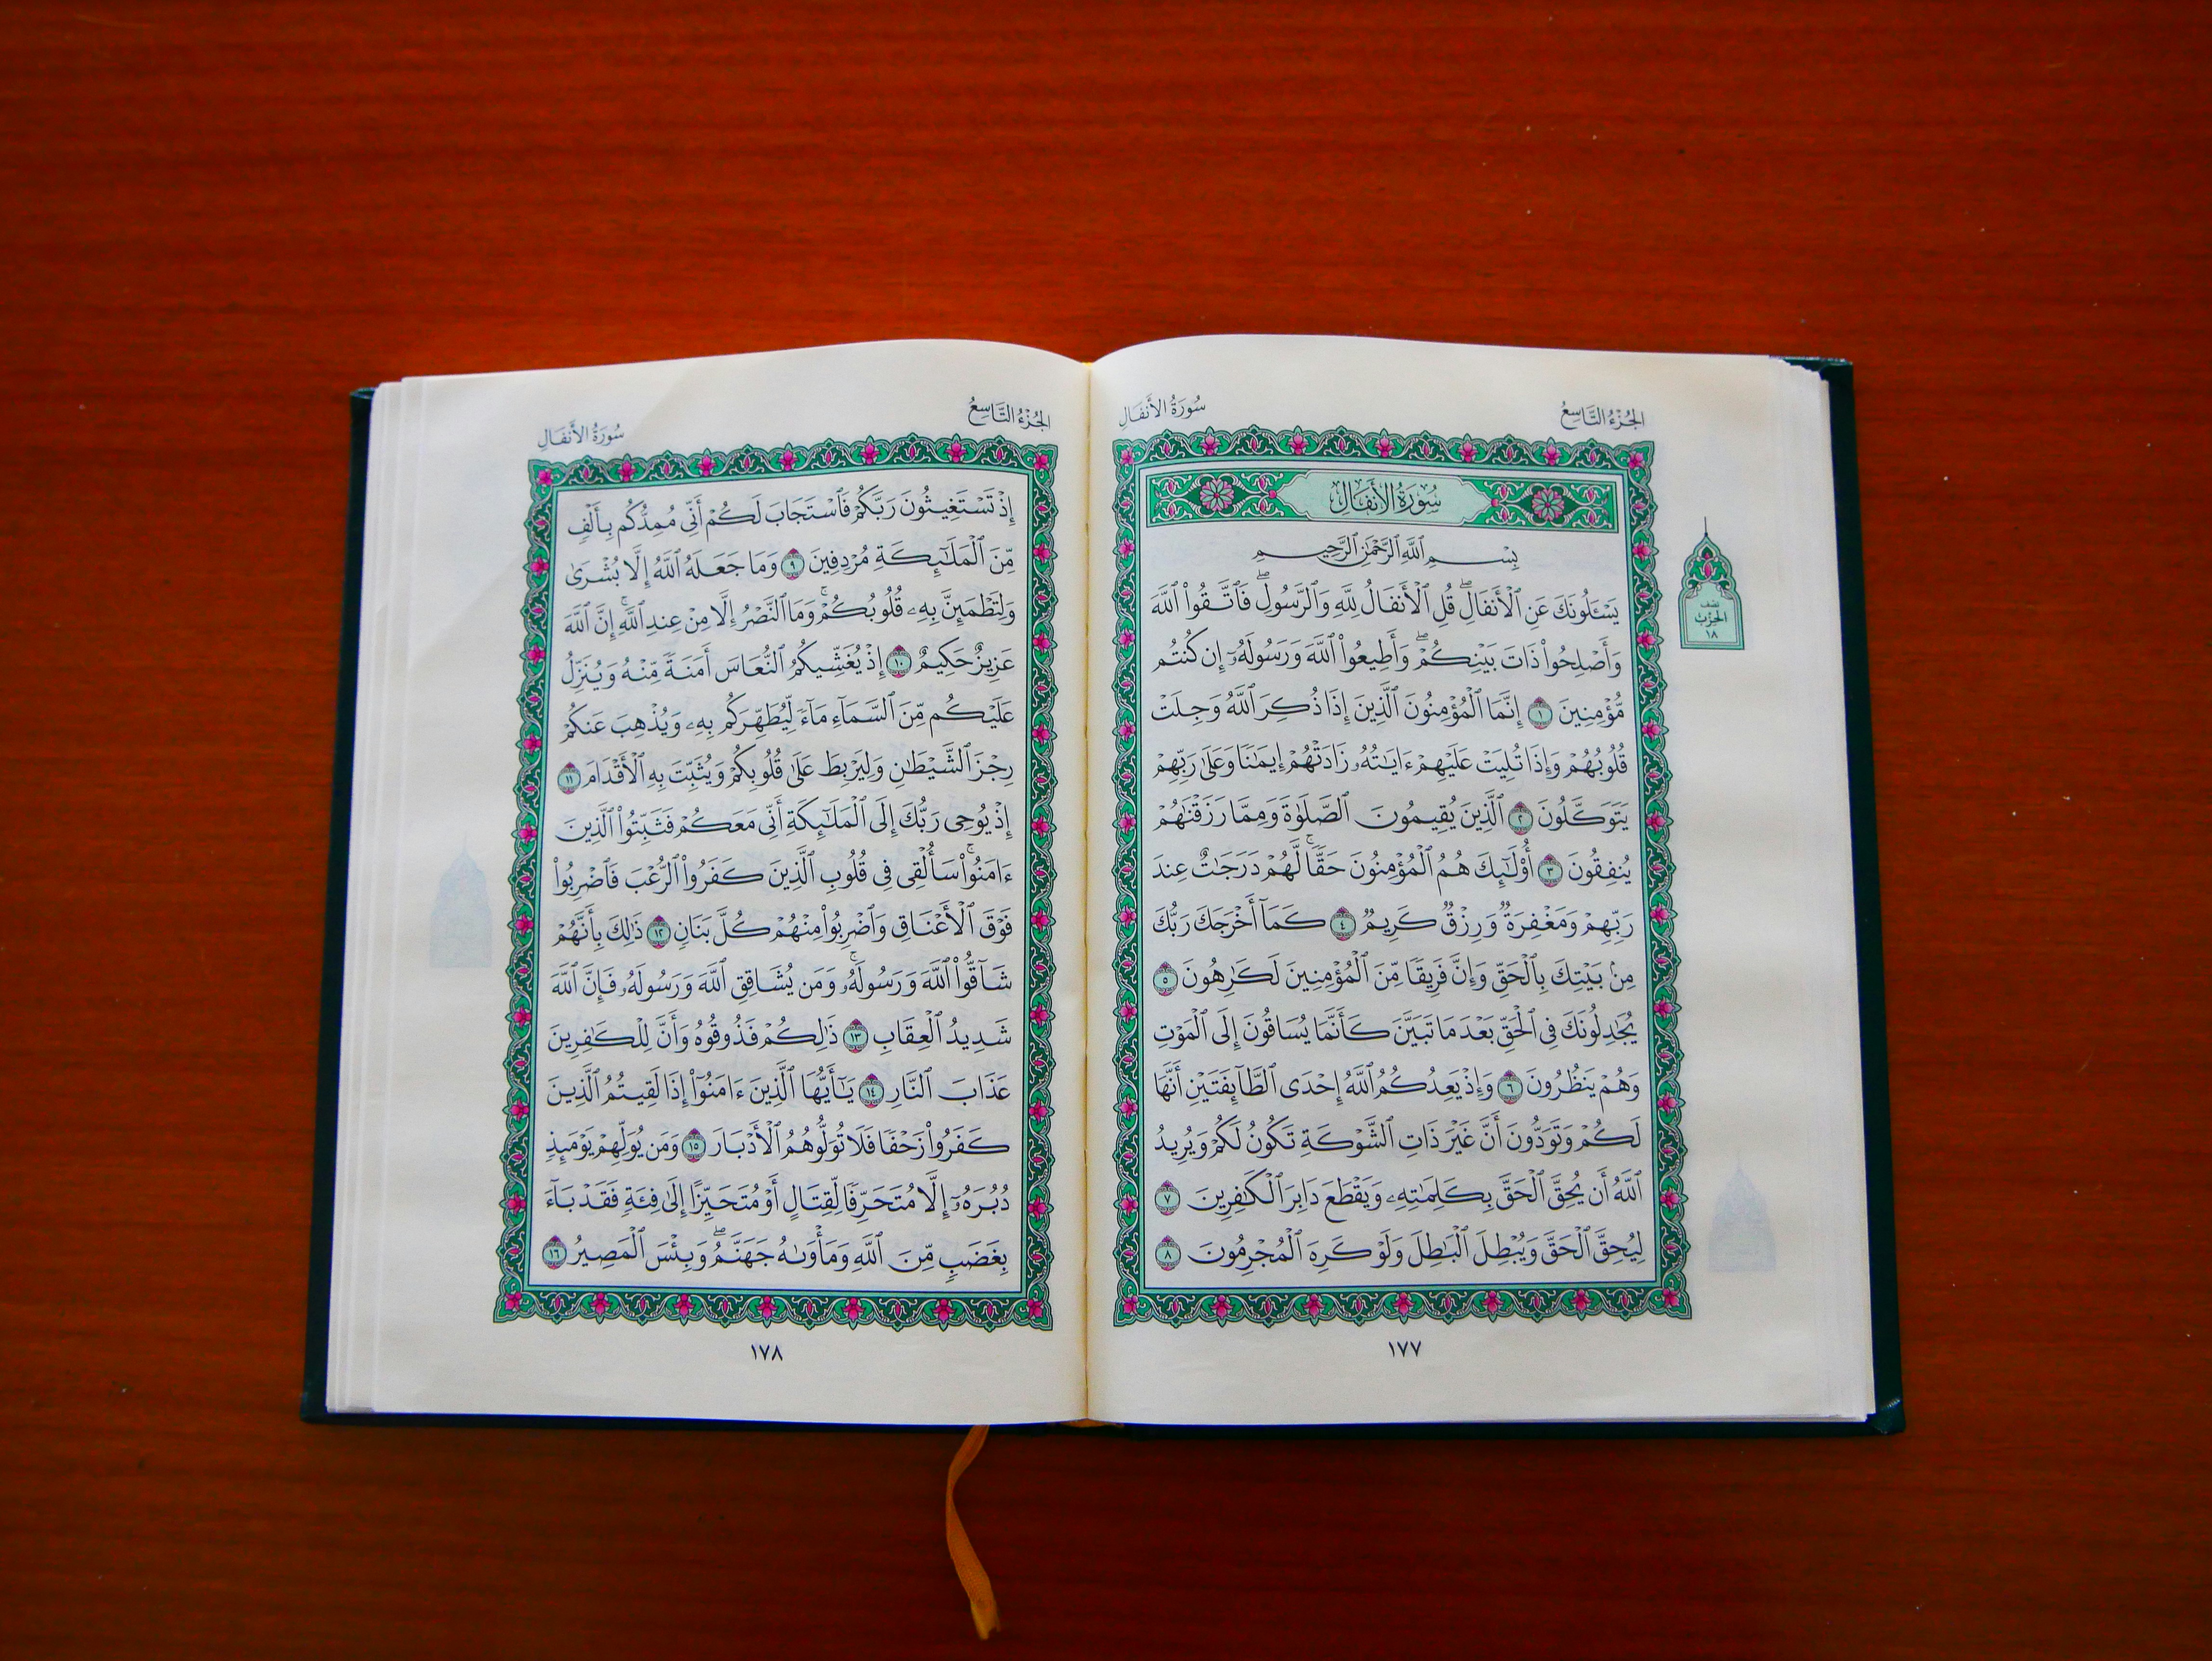 الجُزْءُ التَّاسِعُ
سُورَةُ الأَنفَالِ
سُورَةُ الأَنفَالِ
بِسْمِ ٱللَّهِ ٱلرَّحْمَٰنِ ٱلرَّحِيمِ
يَسْـَٔلُونَكَ عَنِ ٱلْأَنفَالِۖ قُلِ ٱلْأَنفَالُ لِلَّهِ وَٱلرَّسُولِۖ فَٱتَّقُوا۟ ٱللَّهَ
وَأَصْلِحُوا۟ ذَاتَ بَيْنِكُمْۖ وَأَطِيعُوا۟ ٱللَّهَ وَرَسُولَهُۥٓ إِن كُنتُم
مُّؤْمِنِينَ ١ إِنَّمَا ٱلْمُؤْمِنُونَ ٱلَّذِينَ إِذَا ذُكِرَ ٱللَّهُ وَجِلَتْ
قُلُوبُهُمْ وَإِذَا تُلِيَتْ عَلَيْهِمْ ءَايَٰتُهُۥ زَادَتْهُمْ إِيمَٰنًا وَعَلَىٰ رَبِّهِمْ
يَتَوَكَّلُونَ ٢ ٱلَّذِينَ يُقِيمُونَ ٱلصَّلَوٰةَ وَمِمَّا رَزَقْنَٰهُمْ
يُنفِقُونَ ٣ أُو۟لَٰٓئِكَ هُمُ ٱلْمُؤْمِنُونَ حَقًّاۚ لَّهُمْ دَرَجَٰتٌ عِندَ
رَبِّهِمْ وَمَغْفِرَةٌ وَرِزْقٌ كَرِيمٌ ٤ كَمَآ أَخْرَجَكَ رَبُّكَ
مِنۢ بَيْتِكَ بِٱلْحَقِّ وَإِنَّ فَرِيقًا مِّنَ ٱلْمُؤْمِنِينَ لَكَٰرِهُونَ ٥
يُجَٰدِلُونَكَ فِى ٱلْحَقِّ بَعْدَ مَا تَبَيَّنَ كَأَنَّمَا يُسَاقُونَ إِلَى ٱلْمَوْتِ
وَهُمْ يَنظُرُونَ ٦ وَإِذْ يَعِدُكُمُ ٱللَّهُ إِحْدَى ٱلطَّآئِفَتَيْنِ أَنَّهَا
لَكُمْ وَتَوَدُّونَ أَنَّ غَيْرَ ذَاتِ ٱلشَّوْكَةِ تَكُونُ لَكُمْ وَيُرِيدُ
ٱللَّهُ أَن يُحِقَّ ٱلْحَقَّ بِكَلِمَٰتِهِۦ وَيَقْطَعَ دَابِرَ ٱلْكَٰفِرِينَ ٧
لِيُحِقَّ ٱلْحَقَّ وَيُبْطِلَ ٱلْبَٰطِلَ وَلَوْ كَرِهَ ٱلْمُجْرِمُونَ ٨
١٧٧
نصف
الحزب
١٨
الجُزْءُ التَّاسِعُ
سُورَةُ الأَنفَالِ
إِذْ تَسْتَغِيثُونَ رَبَّكُمْ فَٱسْتَجَابَ لَكُمْ أَنِّى مُمِدُّكُم بِأَلْفٍ
مِّنَ ٱلْمَلَٰٓئِكَةِ مُرْدِفِينَ ٩ وَمَا جَعَلَهُ ٱللَّهُ إِلَّا بُشْرَىٰ
وَلِتَطْمَئِنَّ بِهِۦ قُلُوبُكُمْۚ وَمَا ٱلنَّصْرُ إِلَّا مِنْ عِندِ ٱللَّهِۚ إِنَّ ٱللَّهَ
عَزِيزٌ حَكِيمٌ ١٠ إِذْ يُغَشِّيكُمُ ٱلنُّعَاسَ أَمَنَةً مِّنْهُ وَيُنَزِّلُ
عَلَيْكُم مِّنَ ٱلسَّمَآءِ مَآءً لِّيُطَهِّرَكُم بِهِۦ وَيُذْهِبَ عَنكُمْ
رِجْزَ ٱلشَّيْطَٰنِ وَلِيَرْبِطَ عَلَىٰ قُلُوبِكُمْ وَيُثَبِّتَ بِهِ ٱلْأَقْدَامَ ١١
إِذْ يُوحِى رَبُّكَ إِلَى ٱلْمَلَٰٓئِكَةِ أَنِّى مَعَكُمْ فَثَبِّتُوا۟ ٱلَّذِينَ
ءَامَنُوا۟ۚ سَأُلْقِى فِى قُلُوبِ ٱلَّذِينَ كَفَرُوا۟ ٱلرُّعْبَ فَٱضْرِبُوا۟
فَوْقَ ٱلْأَعْنَاقِ وَٱضْرِبُوا۟ مِنْهُمْ كُلَّ بَنَانٍ ١٢ ذَٰلِكَ بِأَنَّهُمْ
شَآقُّوا۟ ٱللَّهَ وَرَسُولَهُۥۚ وَمَن يُشَاقِقِ ٱللَّهَ وَرَسُولَهُۥ فَإِنَّ ٱللَّهَ
شَدِيدُ ٱلْعِقَابِ ١٣ ذَٰلِكُمْ فَذُوقُوهُ وَأَنَّ لِلْكَٰفِرِينَ
عَذَابَ ٱلنَّارِ ١٤ يَٰٓأَيُّهَا ٱلَّذِينَ ءَامَنُوٓا۟ إِذَا لَقِيتُمُ ٱلَّذِينَ
كَفَرُوا۟ زَحْفًا فَلَا تُوَلُّوهُمُ ٱلْأَدْبَارَ ١٥ وَمَن يُوَلِّهِمْ يَوْمَئِذٍ
دُبُرَهُۥٓ إِلَّا مُتَحَرِّفًا لِّقِتَالٍ أَوْ مُتَحَيِّزًا إِلَىٰ فِئَةٍ فَقَدْ بَآءَ
بِغَضَبٍ مِّنَ ٱللَّهِ وَمَأْوَىٰهُ جَهَنَّمُۖ وَبِئْسَ ٱلْمَصِيرُ ١٦
١٧٨